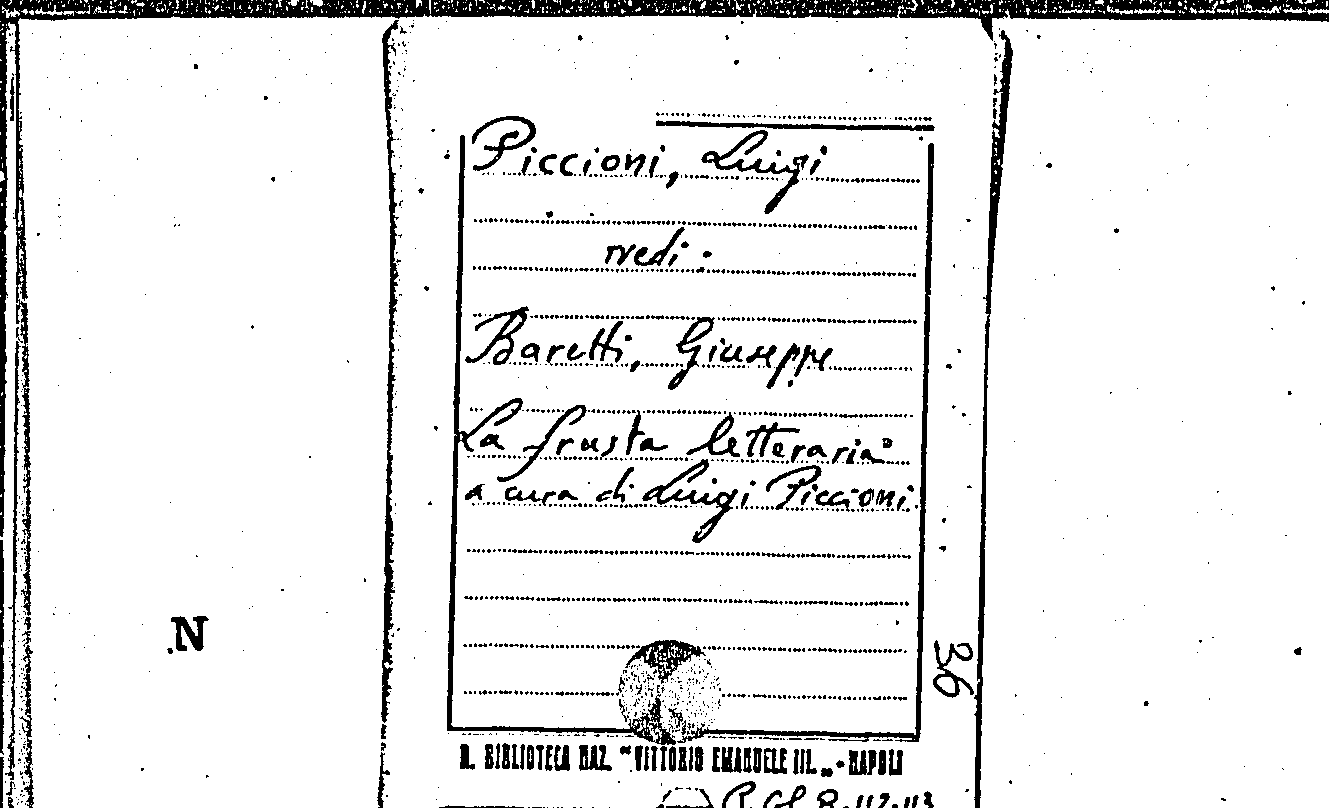 Piccioni, Luigi
vedi:
Baretti, Giuseppe
La frusta letteraria"
a cura di Luigi Piccioni.
N
36
R. BIBLIOTECA NAZ. "VITTORIO EMANUELE III. „ - NAPOLI